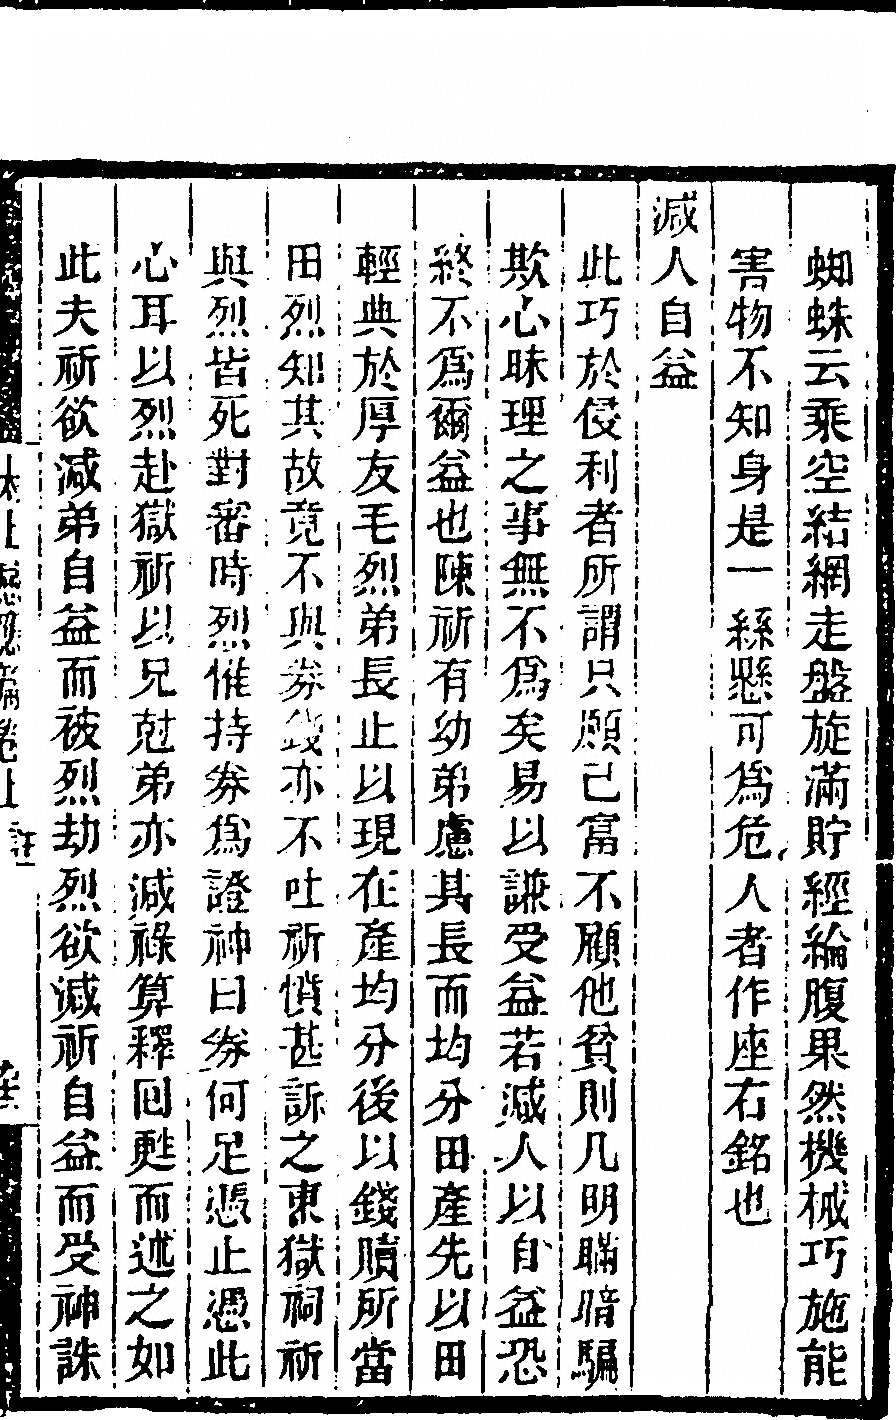 蜘蛛云乘空結網走盤旋滿貯經綸腹果然機械巧施能
害物不知身是一絲懸可爲危人者作座右銘也
減人自益
此巧於侵利者所謂只願己富不顧他貧則凡明瞞暗騙
欺心昧理之事無不爲矣易以謙受益若減人以自益恐
終不爲爾益也陳祈有幼弟慮其長而均分田產先以田
輕典於厚友毛烈弟長止以現在產均分後以錢贖所當
田烈知其故竟不與券錢亦不吐祈憤甚訴之東獄祠祈
與烈皆死對審時烈惟持券爲證神曰券何足憑止憑此
心耳以烈赴獄祈以兄尅弟亦減祿算釋回甦而述之如
此夫祈欲減弟自益而被烈劫烈欲減祈自益而受神誅
太上感應篇卷上 註